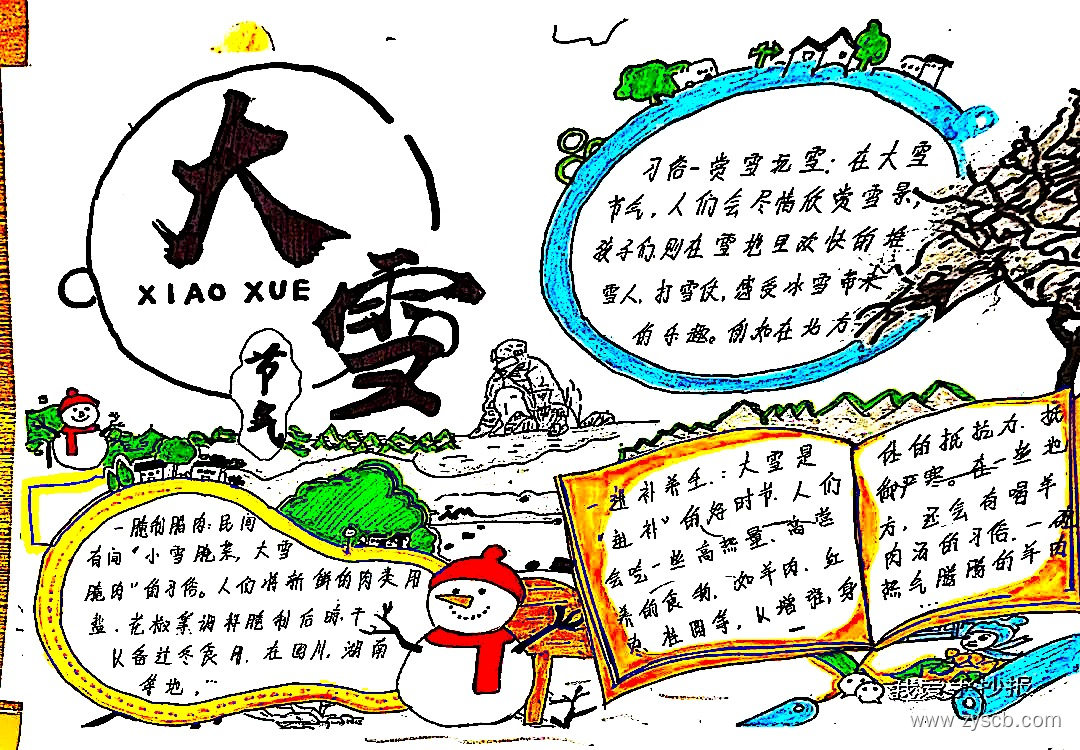 大雪
XIAO XUE
节气
习俗-赏雪玩雪：在大雪
节气，人们会尽情欣赏雪景，
孩子们则在雪地里欢快的堆
雪人，打雪仗，感受冰雪带来
的乐趣。例如在北方
一腌制腊肉：民间
有间“小雪腌菜，大雪
腌肉”的习俗。人们将新鲜的肉类用
盐、花椒等调料腌制后晾干
以备过冬食用，在四川，湖南
等地，…
进补养生：大雪是
“进补”的好时节，人们
会吃一些高热量、高营
养的食物，如羊肉、红
枣、桂圆等，以增强身
体的抵抗力，抵
御严寒。在一些地
方，还会有喝羊
肉汤的习俗，一碗
热气腾腾的羊肉
我爱手抄报
www.zyscb.com